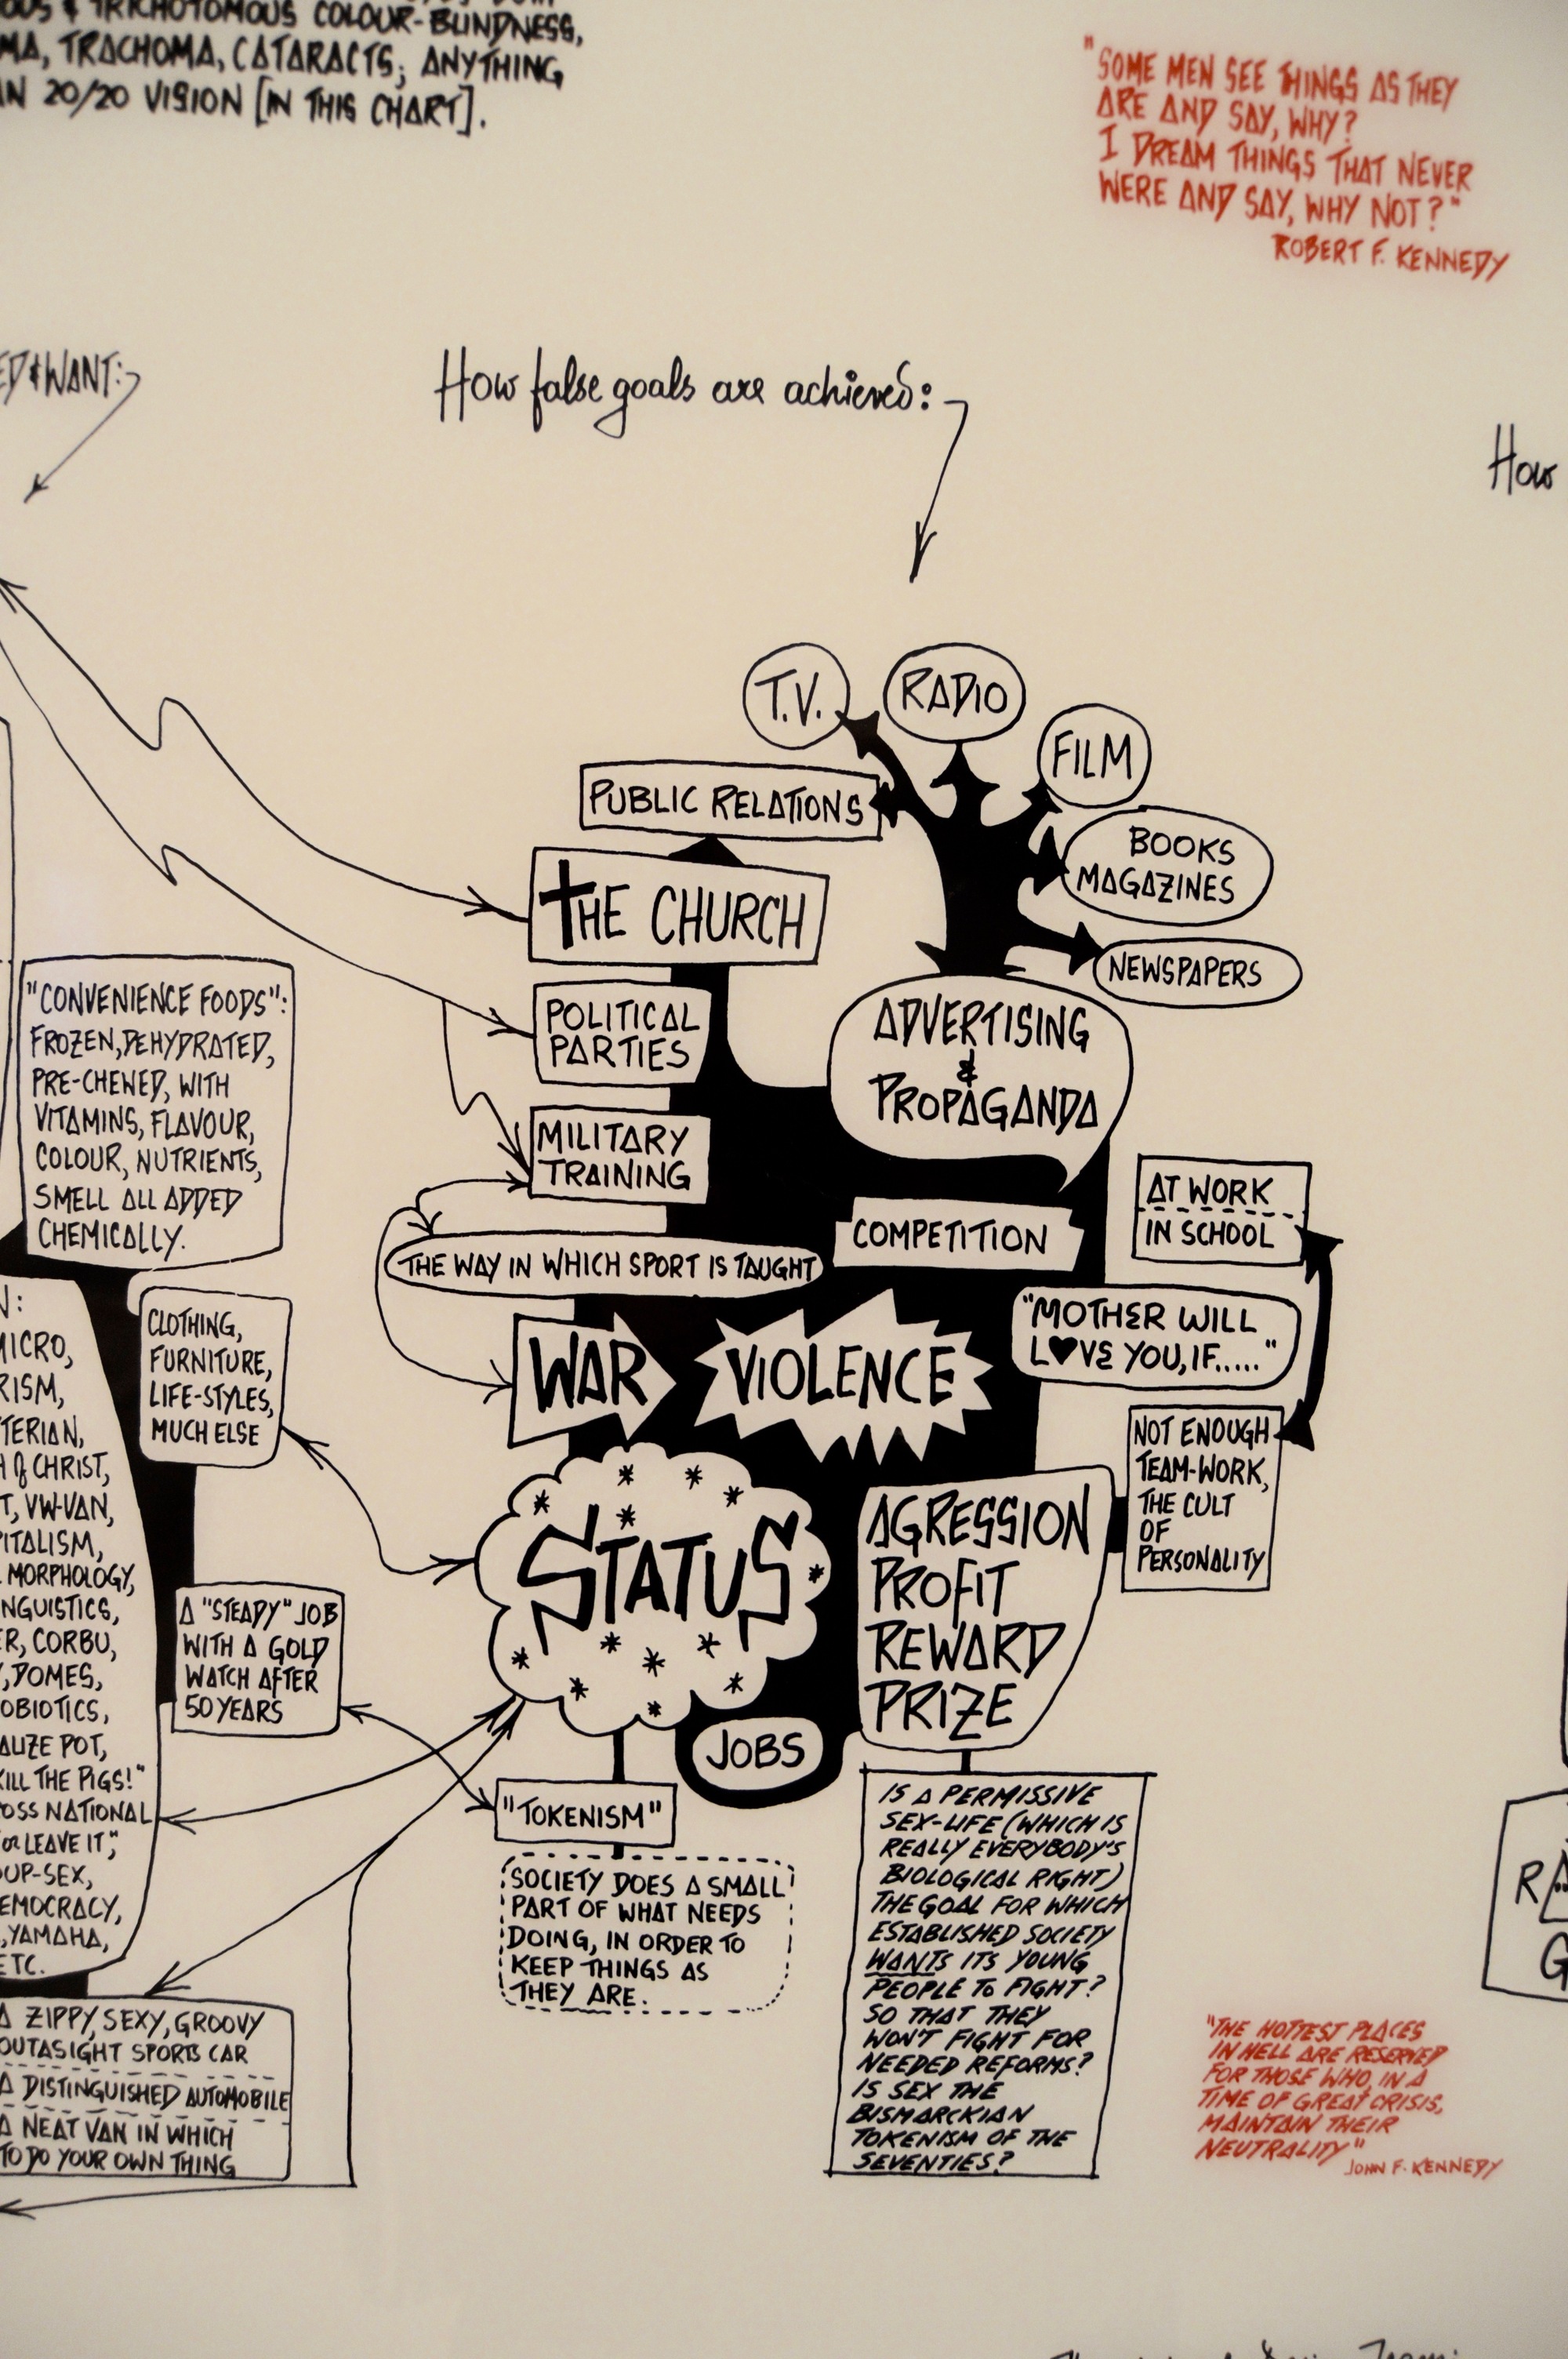 TRICHOTOMOUS COLOUR-BLINDNESS,
TRACHOMA, CATARACTS; ANYTHING
20/20 VISION [IN THIS CHART].
"SOME MEN SEE THINGS AS THEY
ARE AND SAY, WHY?
I DREAM THINGS THAT NEVER
WERE AND SAY, WHY NOT?"
ROBERT F. KENNEDY
& WANT:
How false goals are achieved:
How
T.V.
RADIO
FILM
PUBLIC RELATIONS
BOOKS
MAGAZINES
THE CHURCH
NEWSPAPERS
POLITICAL
PARTIES
ADVERTISING
&
PROPAGANDA
MILITARY
TRAINING
AT WORK
IN SCHOOL
COMPETITION
THE WAY IN WHICH SPORT IS TAUGHT
"MOTHER WILL
L♥VE YOU, IF....."
WAR
VIOLENCE
NOT ENOUGH
TEAM-WORK,
THE CULT
OF
PERSONALITY
STATUS
AGRESSION
PROFIT
REWARD
PRIZE
JOBS
"TOKENISM"
SOCIETY DOES A SMALL
PART OF WHAT NEEDS
DOING, IN ORDER TO
KEEP THINGS AS
THEY ARE.
IS A PERMISSIVE
SEX-LIFE (WHICH IS
REALLY EVERYBODY'S
BIOLOGICAL RIGHT)
THE GOAL FOR WHICH
ESTABLISHED SOCIETY
WANTS ITS YOUNG
PEOPLE TO FIGHT?
SO THAT THEY
WON'T FIGHT FOR
NEEDED REFORMS?
IS SEX THE
BISMARCKIAN
TOKENISM OF THE
SEVENTIES?
"CONVENIENCE FOODS":
FROZEN, DEHYDRATED,
PRE-CHEWED, WITH
VITAMINS, FLAVOUR,
COLOUR, NUTRIENTS,
SMELL ALL ADDED
CHEMICALLY.
CLOTHING,
FURNITURE,
LIFE-STYLES,
MUCH ELSE
A "STEADY" JOB
WITH A GOLD
WATCH AFTER
50 YEARS
MICRO,
of CHRIST,
VW-VAN,
MORPHOLOGY,
CORBU,
DOMES,
POT,
KILL THE PIGS!"
NATIONAL
or LEAVE IT,"
YAMAHA,
ETC.
A ZIPPY, SEXY, GROOVY
OUTASIGHT SPORTS CAR
A DISTINGUISHED AUTOMOBILE
A NEAT VAN IN WHICH
TO DO YOUR OWN THING
"THE HOTTEST PLACES
IN HELL ARE RESERVED
FOR THOSE WHO, IN A
TIME OF GREAT CRISIS,
MAINTAIN THEIR
NEUTRALITY"
JOHN F. KENNEDY